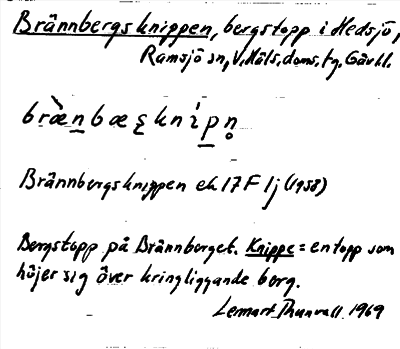 Brännbergsknippen, bergstopp i Hedsjö,
Ramsjö sn, V. Häls. doms., Fg. Gävbl.
bræ̀nbæʂknípn̥
Brännbergsknippen ek 17F 1j (1958)
Bergstopp på Brännberget. Knippe = en topp som
höjer sig över kringliggande berg.
Lennart Thunvall 1969